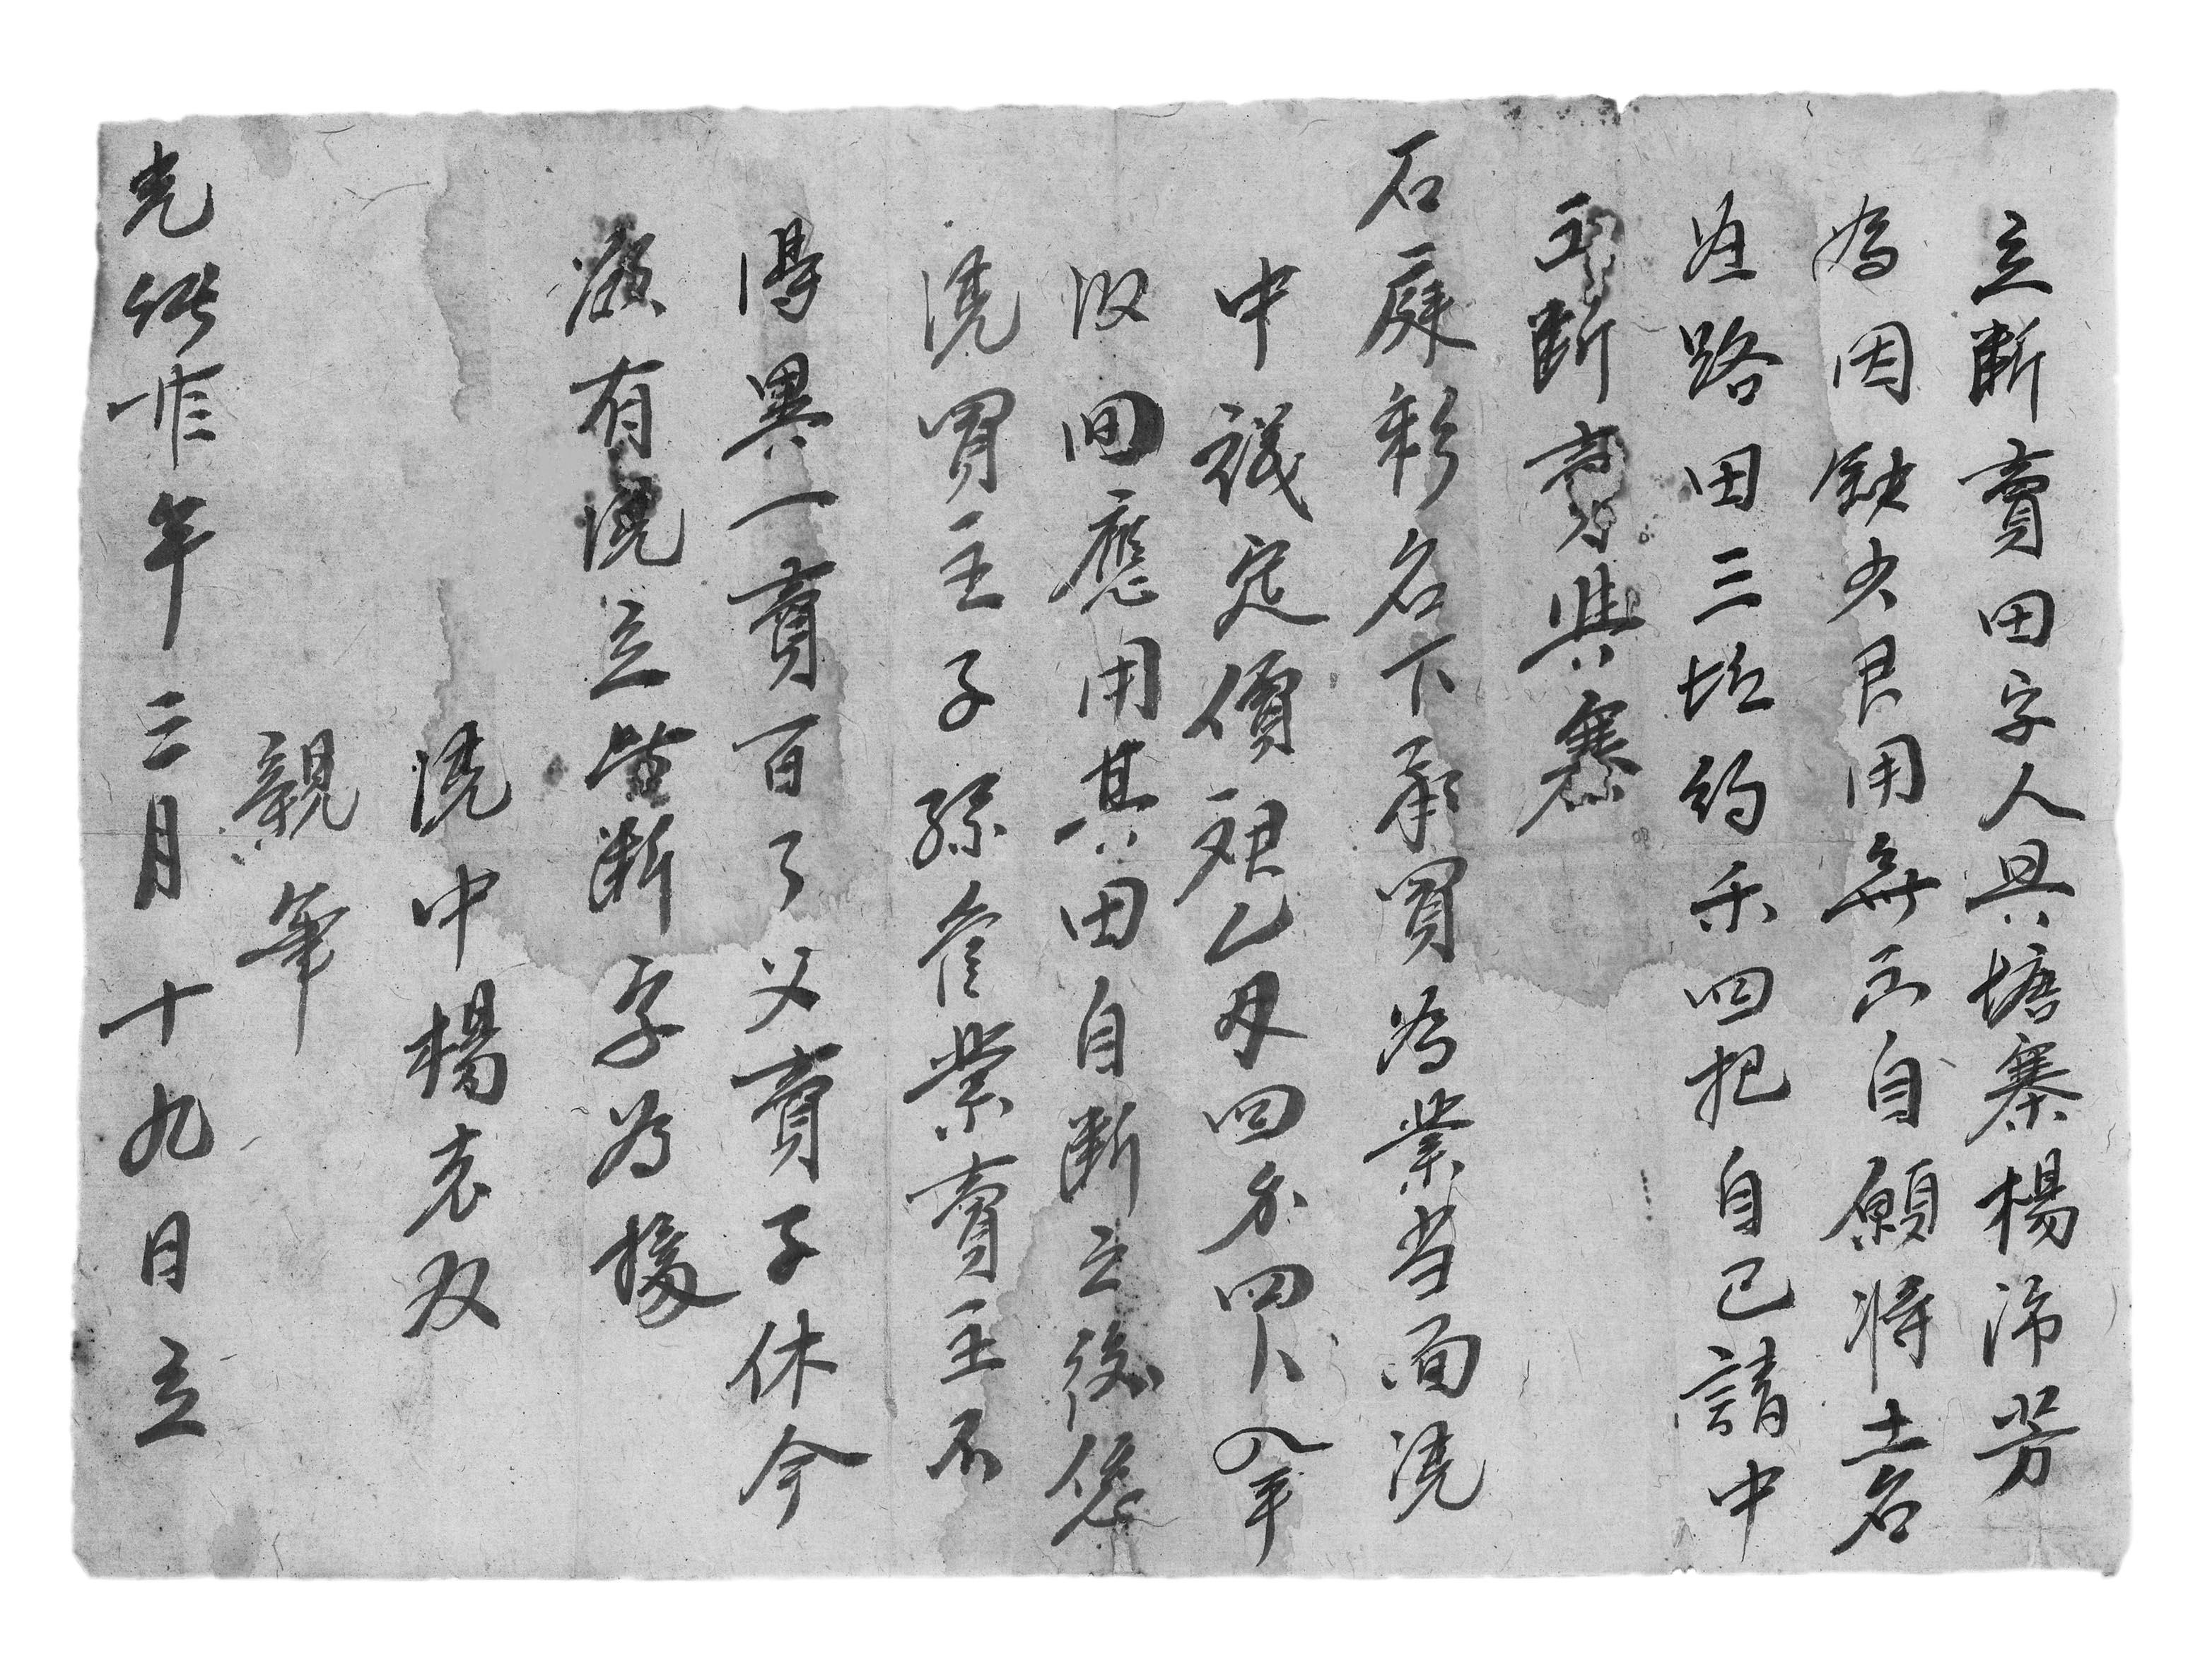 立断賣田字人具塘寨楊沛芳
為因缺少艮用無示自願將土名
路田三坵約禾四把自己請中
立断賣與寨
石庭彩名下承買為業当面凴
中議定價艮乙兩四分四卜入手
收回應用其田自断之後凭
凴買主子孫管業賣主不
得異一賣百了父賣子休今
欲有凴立此断字為據
凴中楊克双
親筆
光緒年三月十九日立